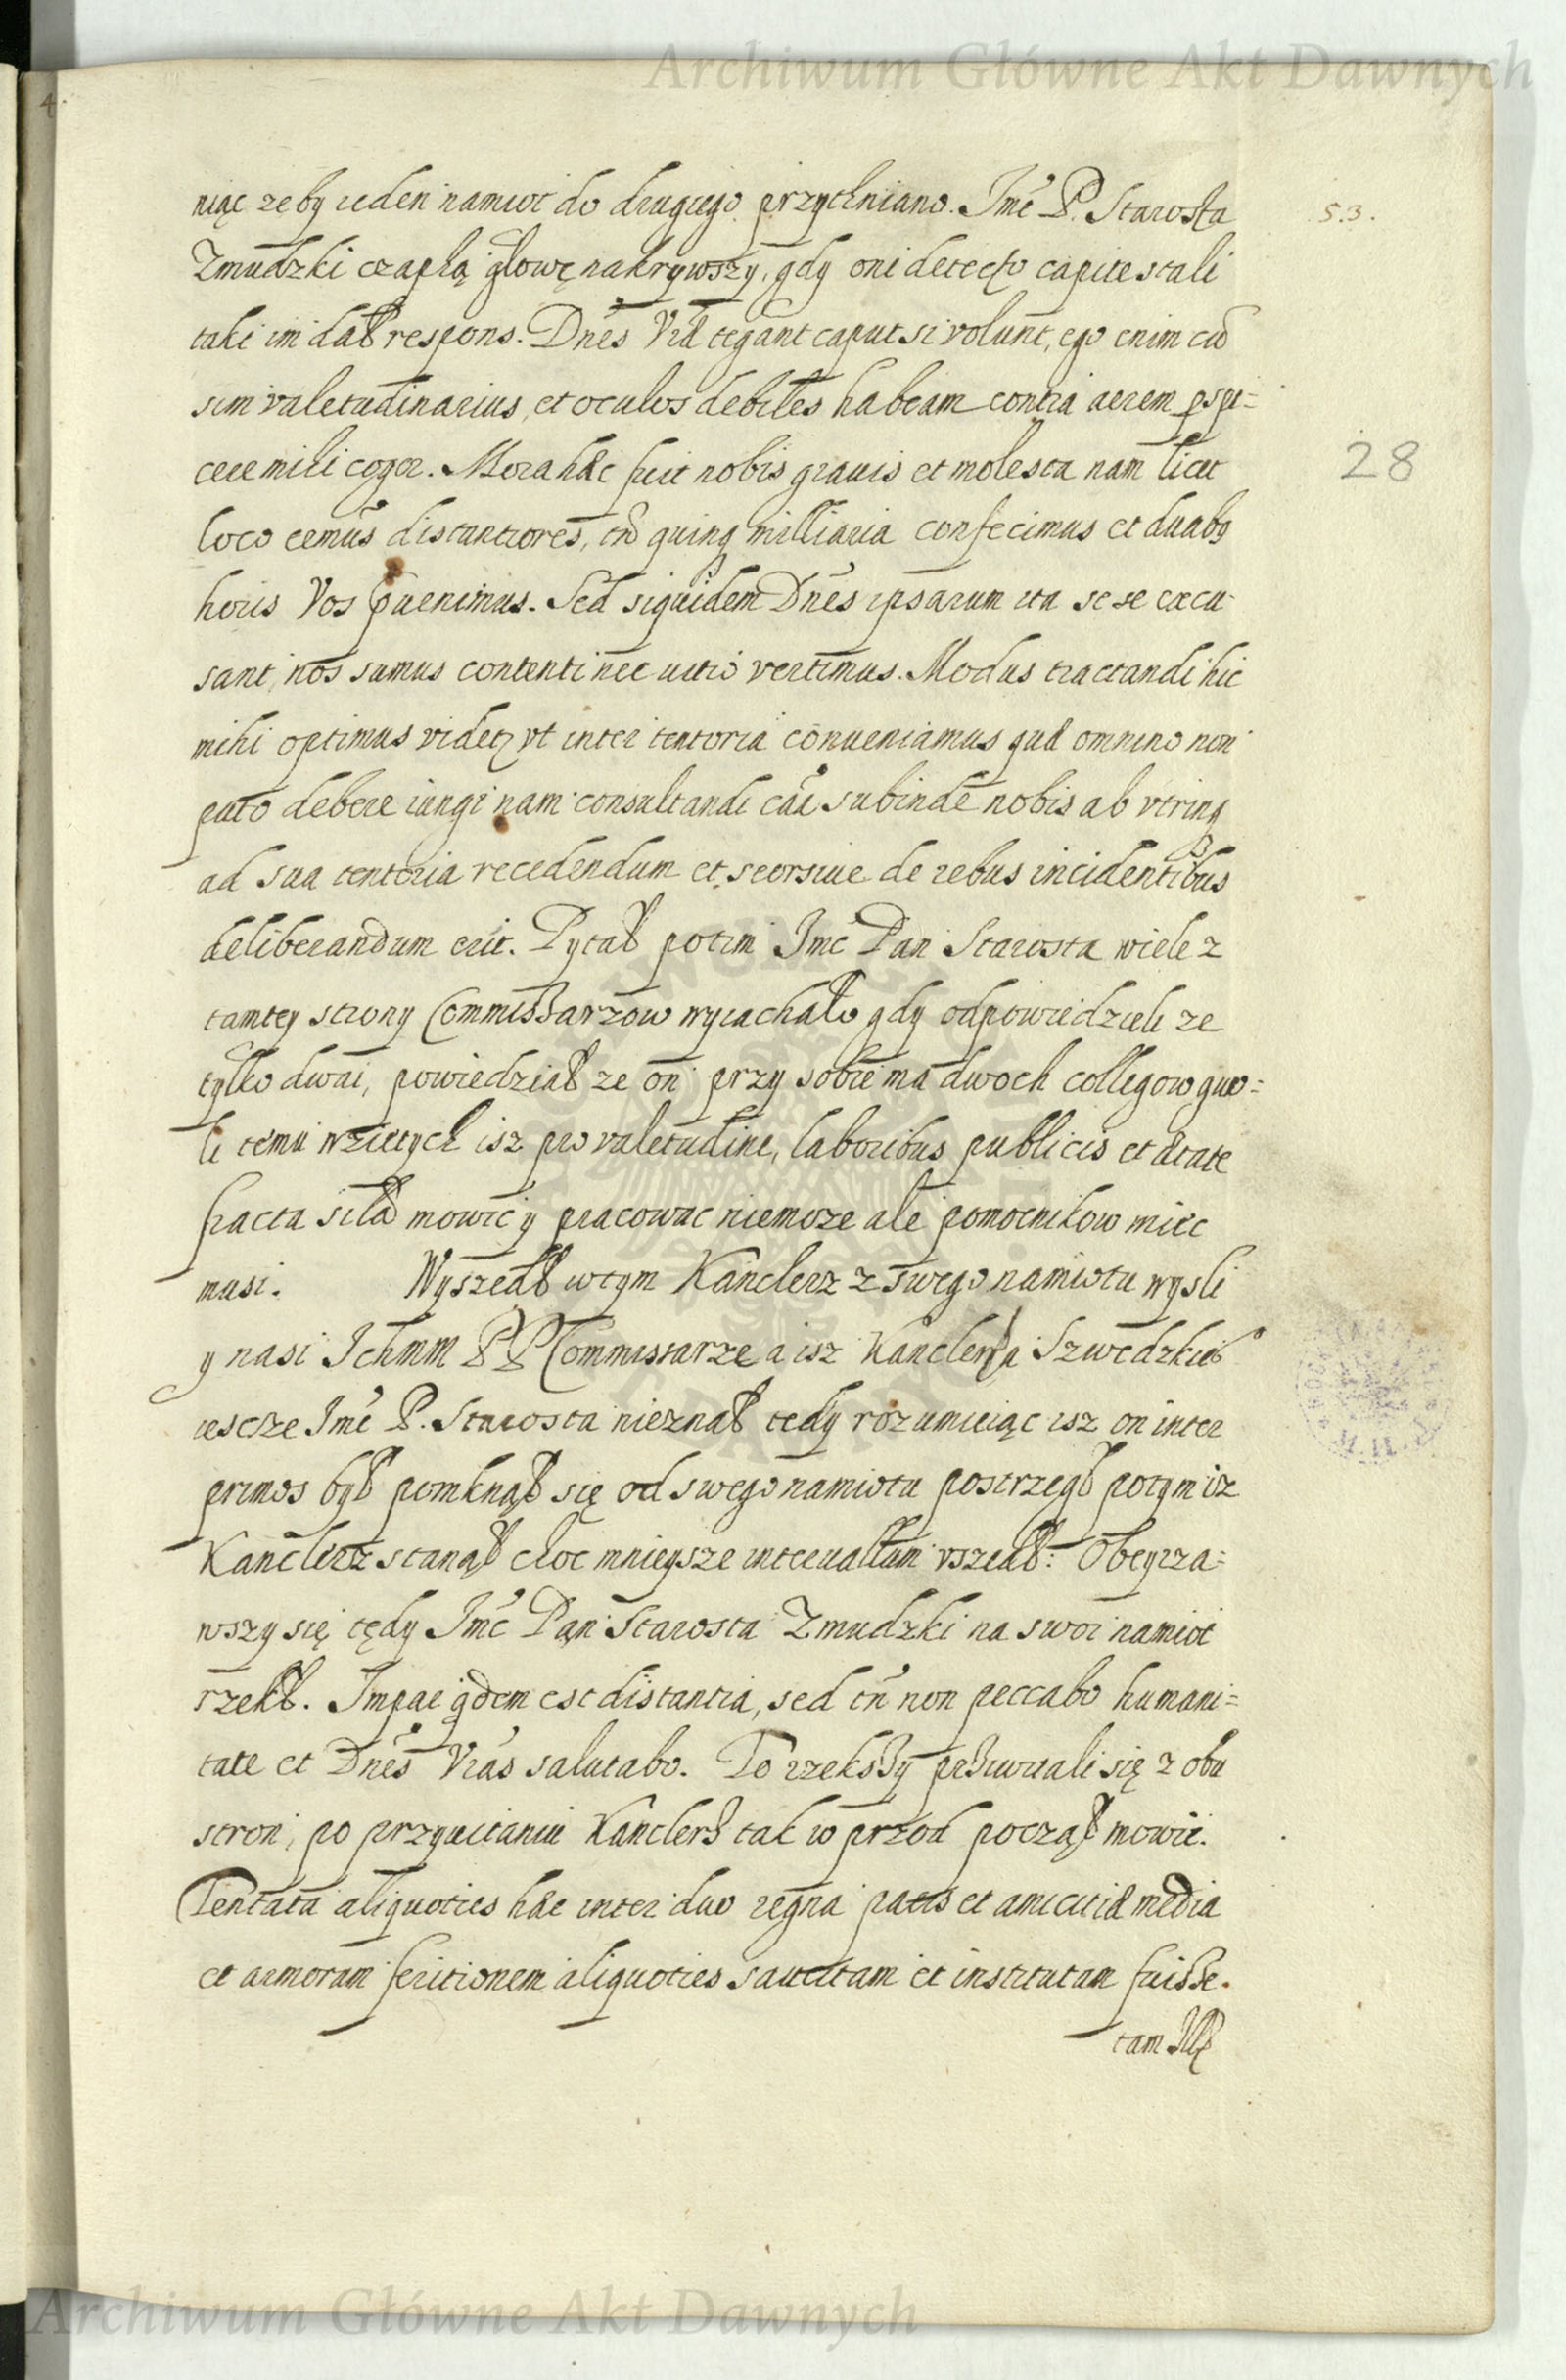 Archiwum Główne Akt Dawnych
4.
niąc zeby ieden namiot do drugiego przychniano. Jmć P. Starosta
53.
Zmudzki czapką głowę nakrywszy, gdy oni detecto capite stali
taki im dał respons. Dnēs Vræ tegant caput si volunt, ego enim cū
sim valetudinarius, et oculos debiles habeam contra aerem ꝑspi=
cere mihi cogor. Mora hæc fuit nobis grauis et molesta nam licet
28
loco eemus distantiores, tn̄ quinq milliaria confecimus et duabꝰ
horis Vos ꝑuenimus. Sed siquidem Dnēs ipsarum ita sese excu
sant, nos sumus contenti nec uitio vertimus. Modus tractandi hic
mihi optimus videtꝛ vt inter tentoria conueniamus quæ omnino non
puto debere iungi nam consultandi cāā subinde nobis ab vtrinqꝫ
ad sua tentoria recedendum et seorsiue de rebus incidentibus
deliberandum erit. Pytał potim Jmć Pan Starosta wiele z
tamtey strony Commissarzow wyiachało gdy odpowiedzieli ze
tylko dwai, powiedział ze on przy sobie ma dwoch collegow gwo=
li temu wzietych isz pro valetudine, laboribus publicis et ætate
fracta siła mowić y pracowac niemoze ale pomocnikow miec
musi. Wyszedł wtym Kanclerz z swego namiotu wysli
y nasi Ichmm PP Commissarze a isz Kanclerza Szwedzkieo
iescze Jmć P. Starosta nieznał tedy rozumieiąc isz on inter
primos był pomknął się od swego namiotu postrzegł potym iz
Kanclerz stanął choc mnieysze interuallum vszedł: Obeyrza=
wszy się tędy Jmć Pan Starosta Zmudzki na swoi namiot
rzekł. Impar qdem est distantia, sed tn̄ non peccabo humani=
tate et Dnēs Vrās salutabo. To rzekszy przywitali się z obu
stron, po przywitaniu Kanclerz tak w przod począł mowić.
Tentata aliquoties hæc inter duo regna pacis et amicitiæ media
et armorum feritionem aliquoties saucitam et institutam fuisse.
tam Ill
Archiwum Główne Akt Dawnych